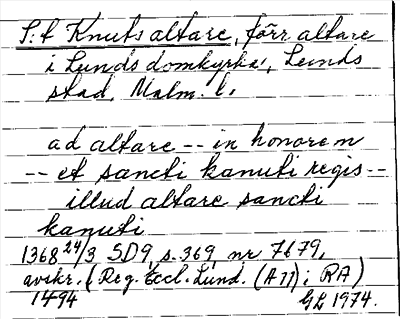 S:t Knuts altare, förr altare
i Lunds domkyrka, Lunds
stad, Malm. l.
ad altare -- in honorem
-- et sancti kanuti regis --
illud altare sancti
kanuti
1368 24/3 SD9, s. 369, nr 7679,
avskr. (Reg. Eccl. Lund. (A 11) i RA)
1494 GL 1974.